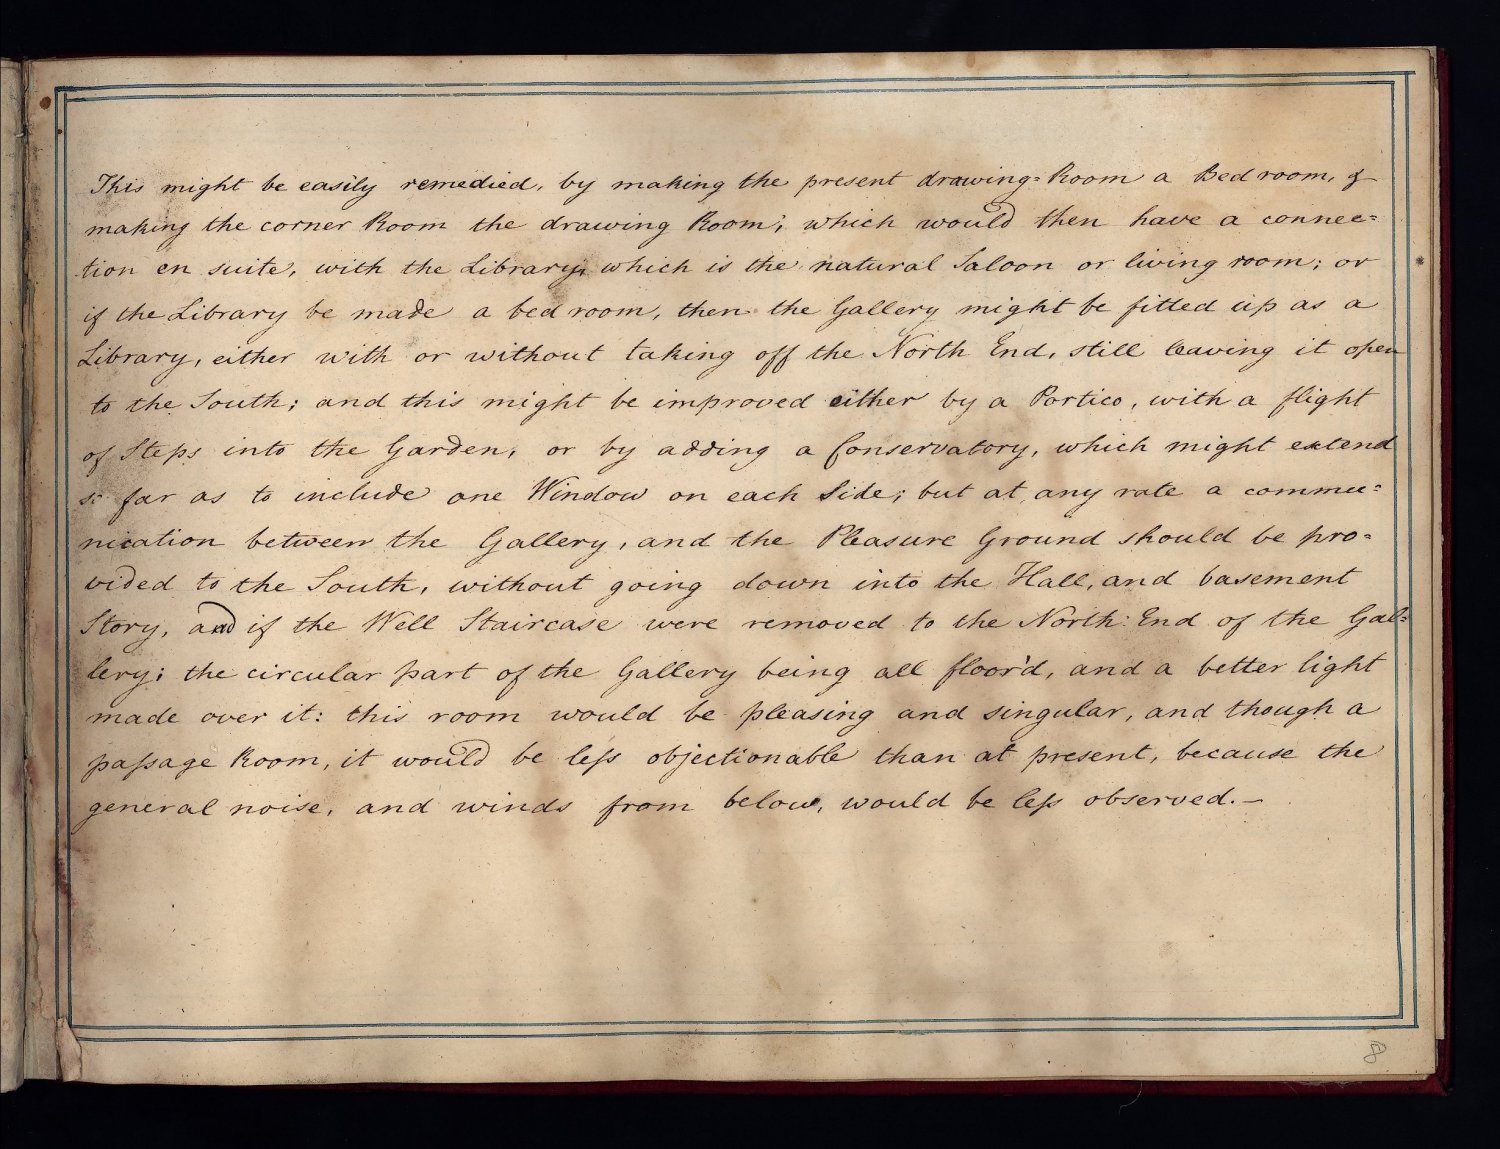 This might be easily remedied, by making the present drawing=Room a Bed room, &
making the corner Room the drawing Room; which would then have a connec=
tion en suite, with the Library, which is the natural Saloon or living room; or
if the Library be made a bed room, then the Gallery might be fitted up as a
Library, either with or without taking off the North End, still leaving it open
to the South; and this might be improved either by a Portico, with a flight
of Steps into the Garden, or by adding a Conservatory, which might extend
so far as to include one Window on each Side; but at any rate a commu=
nication between the Gallery, and the Pleasure Ground should be pro=
vided to the South, without going down into the Hall, and basement
Story, and if the Well Staircase were removed to the North End of the Gal=
lery; the circular part of the Gallery being all floor'd, and a better light
made over it: this room would be pleasing and singular, and though a
paſsage Room, it would be leſs objectionable than at present, because the
general noise, and winds from below, would be leſs observed. —
8